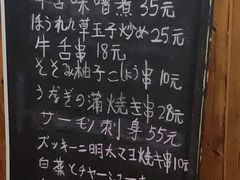 牛舌味噌煮 35元
ほうれん草玉子炒め 25元
牛舌串 18元
そそみ柚子こしょう串 10元
うなぎの蒲焼き串 28元
サーモン刺身 55元
ズッキーニ明太マヨ焼き串 10元
白菜とチャーシュー